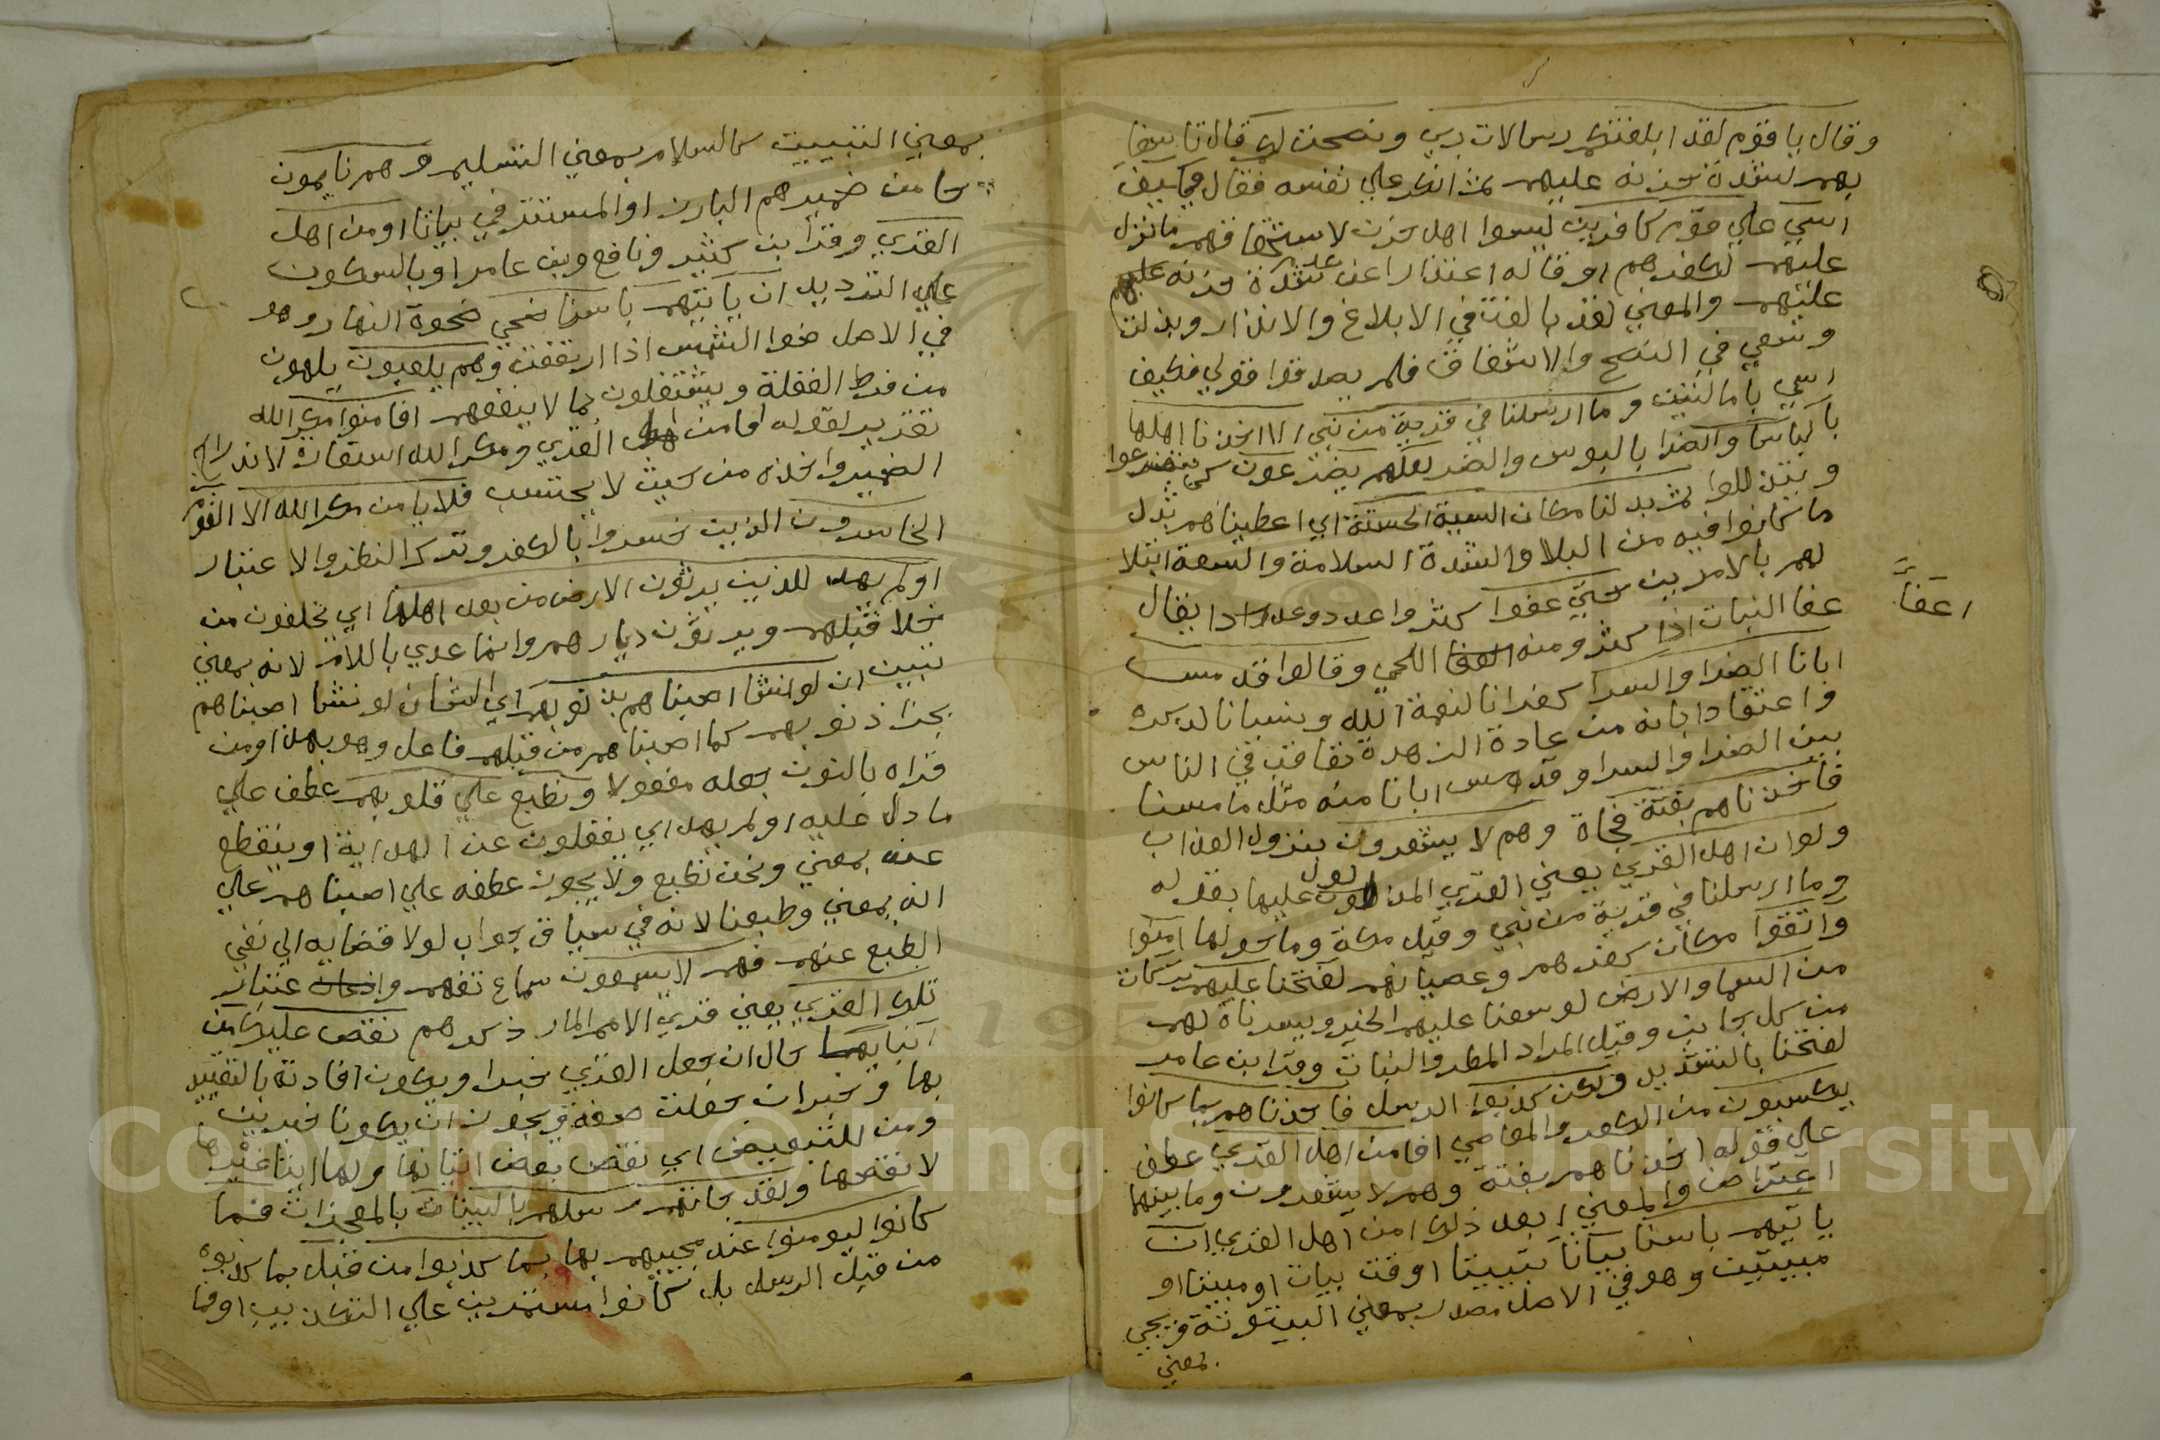 وقال يا قوم لقد ابلغتكم رسالات ربي ونصحت لكم قال تاسفا
بهم لشدة حزنه عليهم ثم انكر علي نفسه فقال فكيف
اسي علي قوم كافرين ليسوا اهل حزن لاستحقاقهم ما نزل
عليهم لكفرهم او قاله اعتذارا عن عدم شدة حزنه عليهم
عليهم والمعني لقد بالغت في الابلاغ والانذار وبذلت
وسعي في النصح والاشفاق فلم يصدقوا قولي فكيف
اسي بامالتين وما ارسلنا في قرية من نبي الا اخذنا اهلها
بالباسا والضرا بالبوس والضر لعلهم يضرعون كي يتضرعوا
ويتذللوا ثم بدلنا مكان السيية الحسنة اي اعطيناهم بدل
ما كانوا فيه من البلا والشدة السلامة والسعة ابتلا
لهم بالامرين حتي عفوا كثروا عددا وعددا يقال
عفا النبات اذا كثر ومنه اعفا اللحي وقالوا قد مس
اعفا
ابانا الضرا والسرا كفرانا لنعمة الله ونسيانا لذكره
واعتقادا بانه من عادة الزهدة تعاقب في الناس
بين الضرا والسرا وقد مس ابانا منه مثل ما مسنا
فاخذناهم بغتة فجاة وهم لا يشعرون بنزول العذاب
ولو ان اهل القري يعني القري المدلول عليها بقوله
وما ارسلنا في قرية من نبي وقيل مكة وما حولها امنوا
واتقوا مكان كفرهم وعصيانهم لفتحنا عليهم بركات
من السما والارض لوسعنا عليهم الخير ويسرناه لهم
من كل جانب وقيل المراد المطر والنبات وقرا ابن عامر
لفتحنا بالتشديد ولكن كذبوا الرسل فاخذناهم بما كانوا
يكسبون من الكفر والمعاصي افامن اهل القري عطف
علي قوله اخذناهم بغتة وهم لا يشعرون وما بينهما
اعتراض والمعني ابعد ذلك امن اهل القري ان
ياتيهم باسنا بياتا تبييتا او وقت بيات او مبيتا او
مبييتين وهو في الاصل مصدر بمعني البيتوتة ويجي
بمعني
بمعني التبييت كالسلام بمعني التسليم وهم نايمون
حا من ضميرهم البارز او المستتر في بياتا اومن اهل
القري وقرا ابن كثير ونافع وابن عامر او بالسكون
علي الترديد ان ياتيهم باسنا ضحي ضحوة النهار وهو
في الاصل ضوا الشمس اذا ارتفعت وهم يلعبون يلهون
من فرط الغفلة ويشتغلون بما لا ينفعهم افامنوا مكر الله
تقرير لقوله افامن اهل القري ومكر الله استعارة لاستدراج
الضمير واخذه من حيث لا يحتسب فلا يامن مكر الله الا القوم
الخاسرون الذين خسروا بالكفر وترك النظر والاعتبار
اولم يهد للذين يرثون الارض من بعد اهلها اي يخلفون من
خلا قبلهم ويرثون ديارهم وانما عدي باللام لانه بمعني
تبيين ان لو نشا اصبناهم بذنوبهم اي الشان لو نشا اصبناهم
بجزا ذنوبهم كما اصبنا هم من قبلهم فاعل وهو يهد ومن
قراه بالنون جعله مفعولا ونطبع علي قلوبهم عطف علي
ما دل عليه اولم يهد اي يغفلون عن الهداية او ينقطع
عنه بمعني ونحن نطبع ولا يجوز عطفه علي اصبناهم علي
انه بمعني وطبعنا لانه في سياق جواب لو لافضايه الي نفي
الطبع عنهم فهم لا يسمعون سماع تفهم واعتبار
تلك القري يعني قري الامم المار ذكرهم نقص عليك من
انبايها حال ان جعل القري خبرا ويكون افادته بالتقييد
بها وخبر ان جعلت صفة ويجوز ان يكونا خبرين
ومن للتبعيض اي نقص بعض انبايها ولها انبا غيرها
لا نقصها ولقد جاتهم رسلهم بالبينات بالمعجزات فما
كانوا ليومنوا عند مجييهم بها بما كذبوا من قبل بما كذبوه
من قبل الرسل بل كانوا مستمرين علي التكذيب او فما